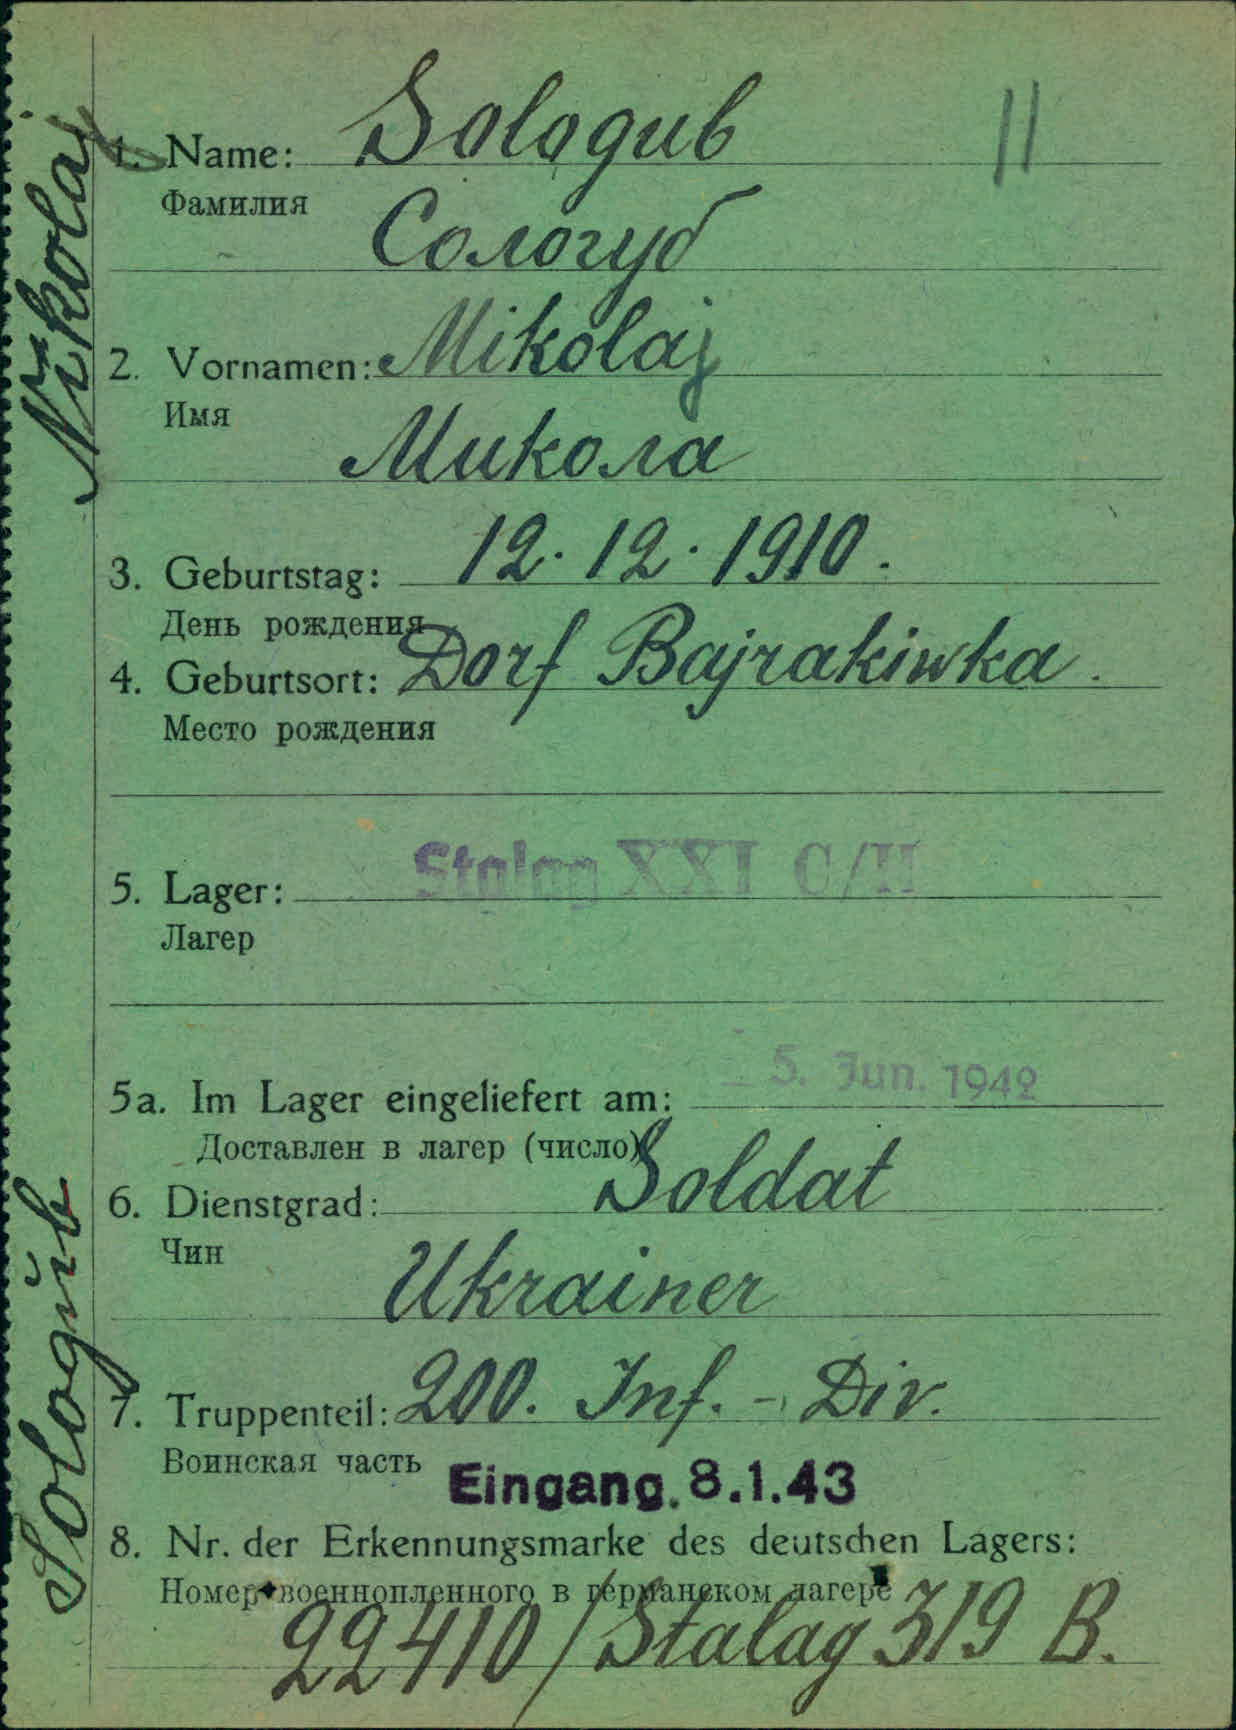 Nikolaj
Sologub
11
1. Name: Sologub
Фамилия
Сологуб
2. Vornamen: Mikolaj
Имя
Микола
3. Geburtstag: 12.12.1910.
День рождения
4. Geburtsort: Dorf Bajrakiwka.
Место рождения
5. Lager: Stalag XXI C/H
Лагер
5a. Im Lager eingeliefert am: - 5. Jun. 1942
Доставлен в лагер (число)
6. Dienstgrad: Soldat
Чин
Ukrainer
7. Truppenteil: 200. Inf. - Div.
Воинская часть
Eingang. 8.1.43
8. Nr. der Erkennungsmarke des deutschen Lagers:
Номер военнопленного в германском лагере
22410/Stalag 319 B.